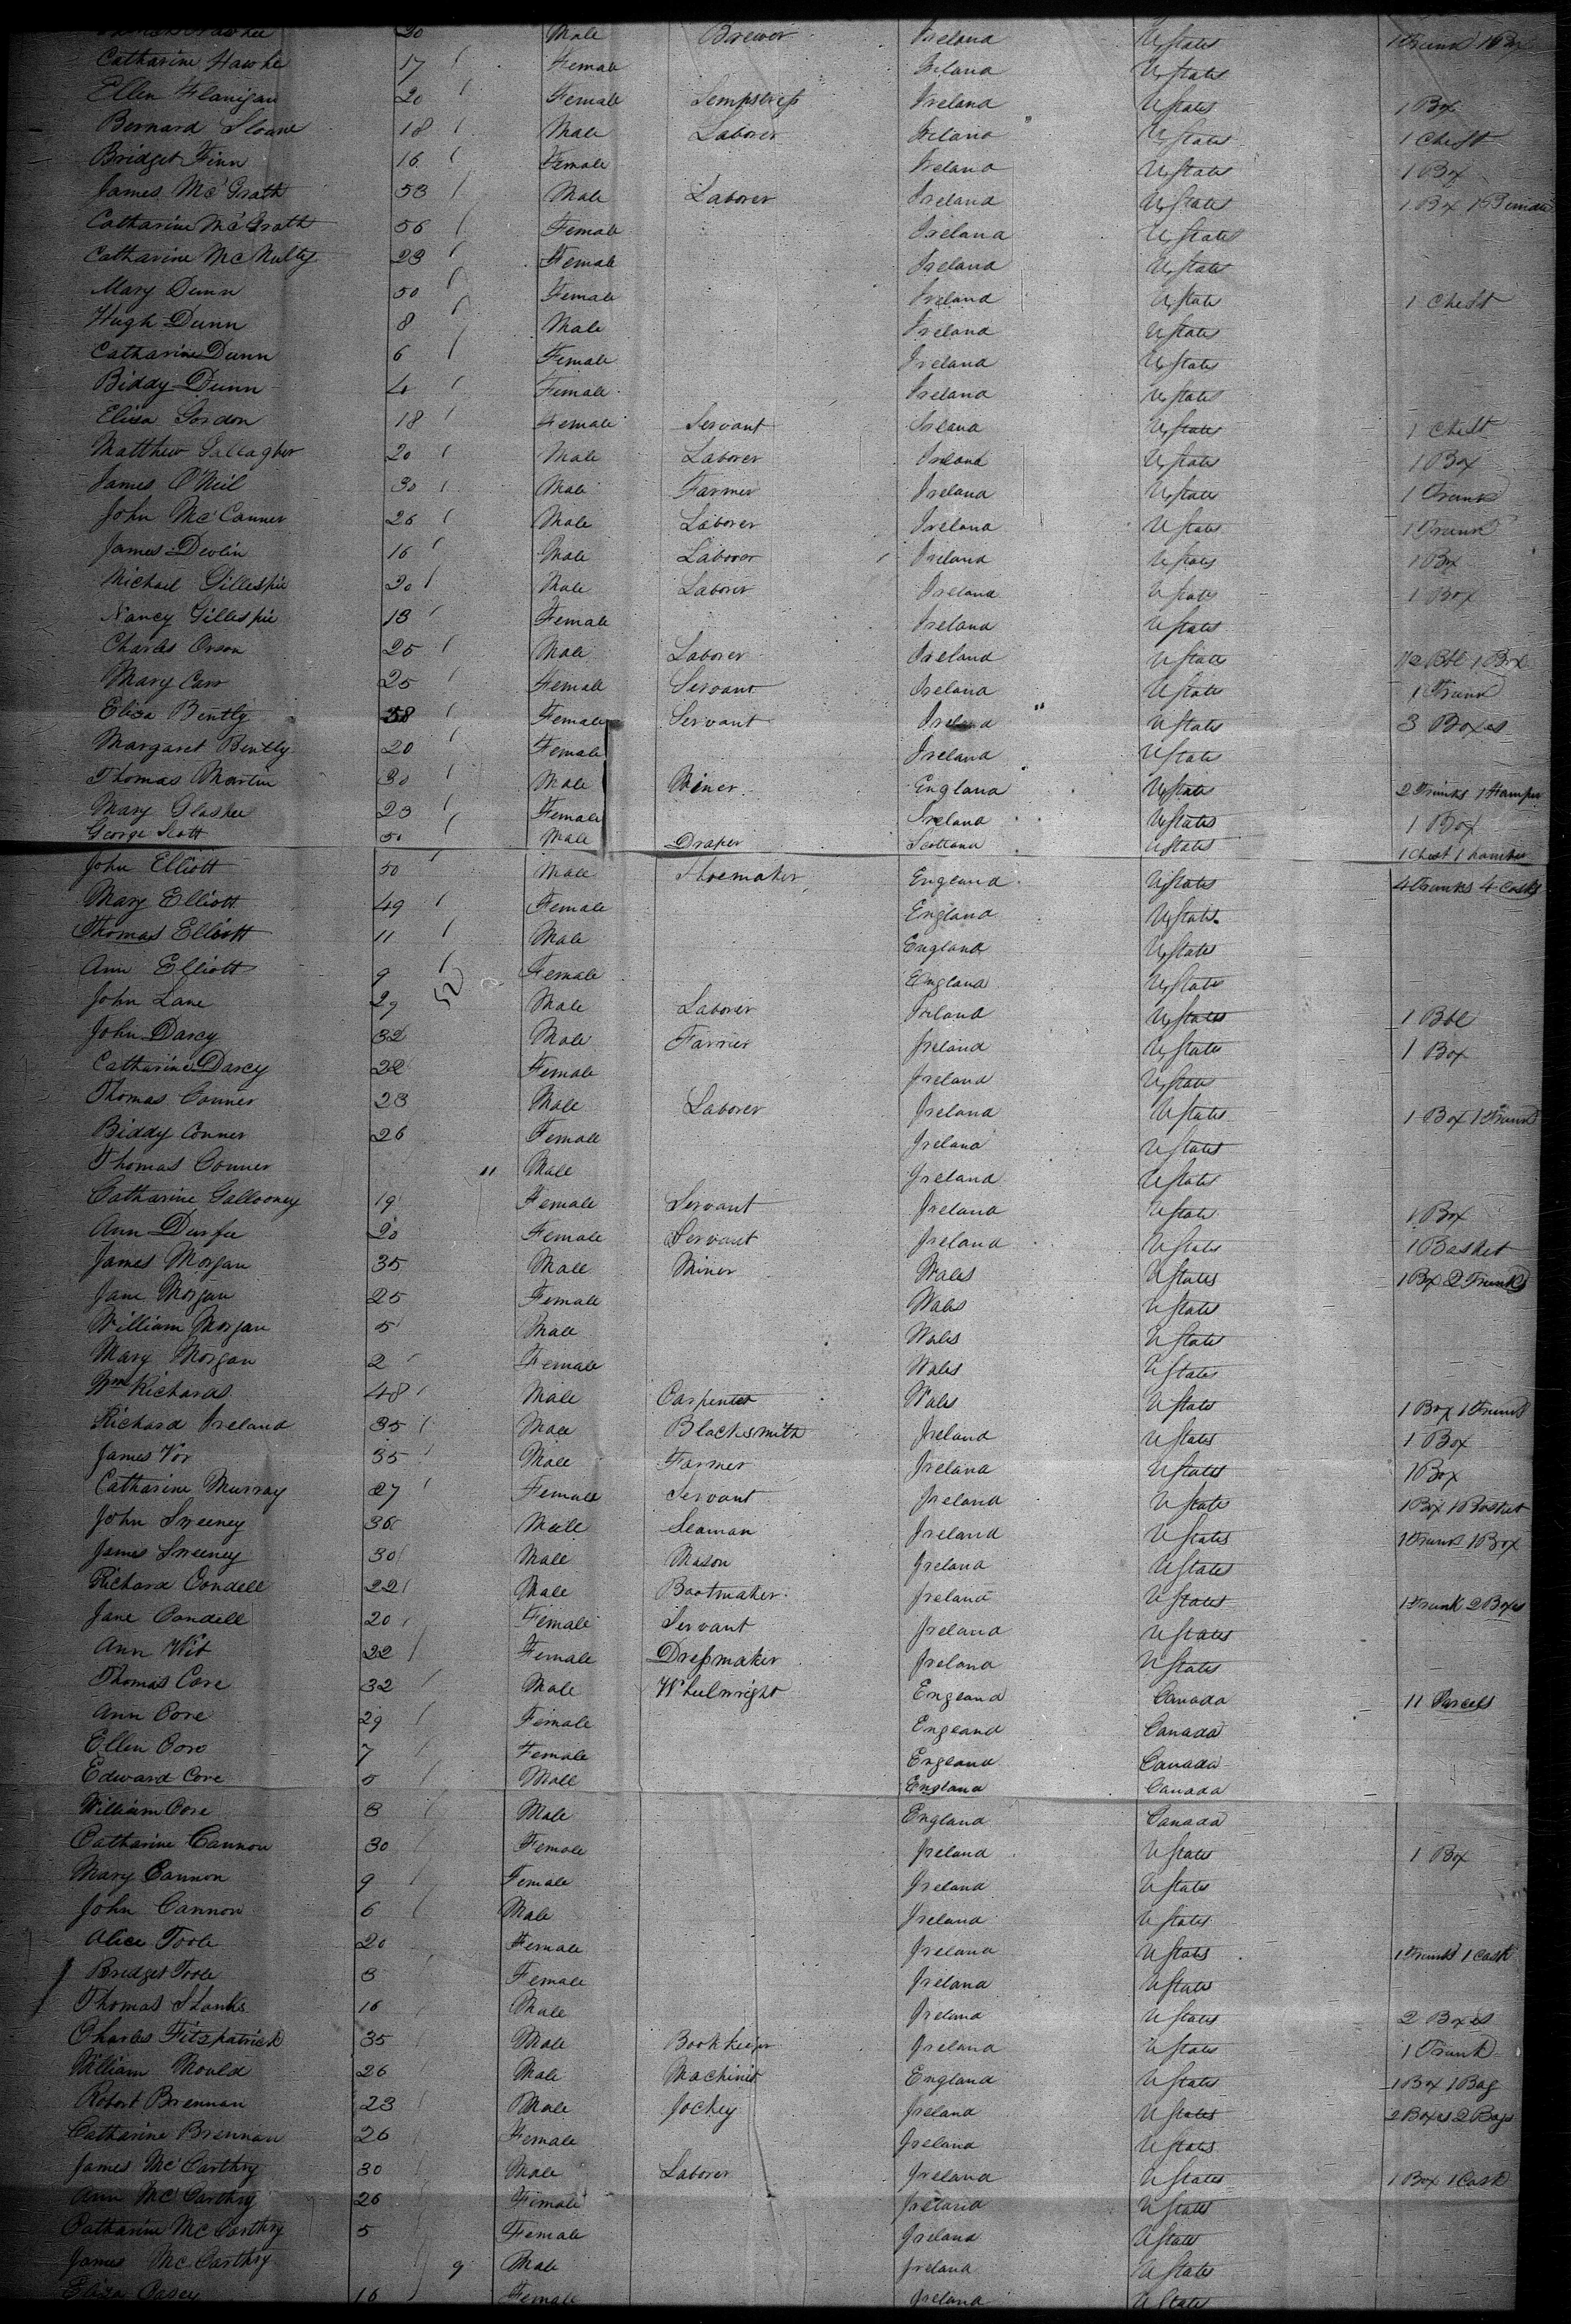 20 Male Brewer Ireland U States 1 Trunk 1 Box
Catharine Hawke 17 Female Ireland U States
Ellen Flanigan 20 Female Sempstress Ireland U States 1 Box
Bernard Sloane 18 Male Laborer Ireland U States 1 Chest
Bridget Finn 16 Female Ireland U States 1 Box
James McGrath 53 Male Laborer Ireland U States 1 Box 1
Catharine McGrath 56 Female Ireland U States
Catharine McNulty 23 Female Ireland U States
Mary Dunn 50 Female Ireland U State 1 Chest
Hugh Dunn 8 Male Ireland U States
Catharine Dunn 6 Female Ireland U States
Biddy Dunn 4 Female Ireland U States
Eliza Gordon 18 Female Servant Ireland U States 1 Chest
Matthew Gallagher 20 Male Laborer Ireland U States 1 Box
James O'Neil 30 Male Farmer Ireland U States 1 Trunk
John McConner 26 Male Laborer Ireland U States 1 Trunk
James Devlin 16 Male Laborer Ireland U States 1 Box
Michael Gillespie 20 Male Laborer Ireland U States 1 Box
Nancy Gillespie 13 Female Ireland U States
Charles Orson 25 Male Laborer Ireland U States 1/2 Bbl 1 Box
Mary Carr 25 Female Servant Ireland U States 1 Trunk
Eliza Bently 58 Female Servant Ireland U States 3 Boxes
Margaret Bently 20 Female Ireland U States
Thomas Martin 30 Male Miner England U States 2 Trunks 1 Hamper
Mary 23 Female Ireland U States 1 Box
George Scott 50 Male Draper Scotland U States 1 Chest 1 hamber
John Elliott 50 Male Shoemaker England U States 4 trunks 4 Casks
Mary Elliott 49 Female England U States
Thomas Elliott 11 Male England U States
Ann Elliott 9 Female England U States
52
John Lane 29 Male Laborer Ireland U States 1 Bbl
John Darcy 32 Male Farrier Ireland U States 1 Box
Catharine Darcy 22 Female Ireland U States
Thomas Conner 23 Male Laborer Ireland U States 1 Box 1 Trunk
Biddy Conner 26 Female Ireland U States
Thomas Conner 11 Male Ireland U States
Catharine Gallooney 19 Female Servant Ireland U State 1 Box
Ann Durfee 20 Female Servant Ireland U States 1 Basket
James Morgan 35 Male Miner Wales U States 1 Box 2 Trunks
Jane Morgan 25 Female Wales U States
William Morgan 5 Male Wales U States
Mary Morgan 2 Female Wales U States
Wm Richards 48 Male Carpenter Wales U States 1 Box 1 Trunk
Richard Ireland 35 Male Blacksmith Ireland U States 1 Box
James 35 Male Farmer Ireland U States 1 Box
Catharine Murray 27 Female Servant Ireland U State 1 Box 1 Basket
John Sweeney 36 Male Seaman Ireland U States 1 Trunk 1 Box
James Sweeney 30 Male Mason Ireland U States
Richard Condell 22 Male Bootmaker Ireland U States 1 Trunk 2 Boxes
Jane Condell 20 Female Servant Ireland U States
Ann 22 Female Dressmaker Ireland U States
Thomas Core 32 Male Wheelwright England Canada 11 Parcels
Ann Core 29 Female England Canada
Ellen Core 7 Female England Canada
Edward Core 5 Male England Canada
William Core 3 Male England Canada
Catharine Cannon 30 Female Ireland U States 1 Box
Mary Cannon 9 Female Ireland U States
John Cannon 6 Male Ireland U States
Alice Toole 20 Female Ireland U States 1 Trunk 1 Cask
Bridget Toole 3 Female Ireland U States
Thomas Shanks 16 Male Ireland U States 2 Boxes
Charles Fitzpatrick 35 Male Bookkeeper Ireland U States 1 Trunk
William Mould 26 Male Machinist England U States 1 Box 1 Bag
Robert Brennan 23 Male Jockey Ireland U States 2 Boxes 2 Bags
Catharine Brennan 26 Female Ireland U States
James McCarthy 30 Male Laborer Ireland U States 1 Box 1 Cask
Ann McCarthy 26 Female Ireland U States
Catharine McCarthy 5 Female Ireland U States
James McCarthy 9 Male Ireland U States
Eliza Casey 16 Female Ireland U States